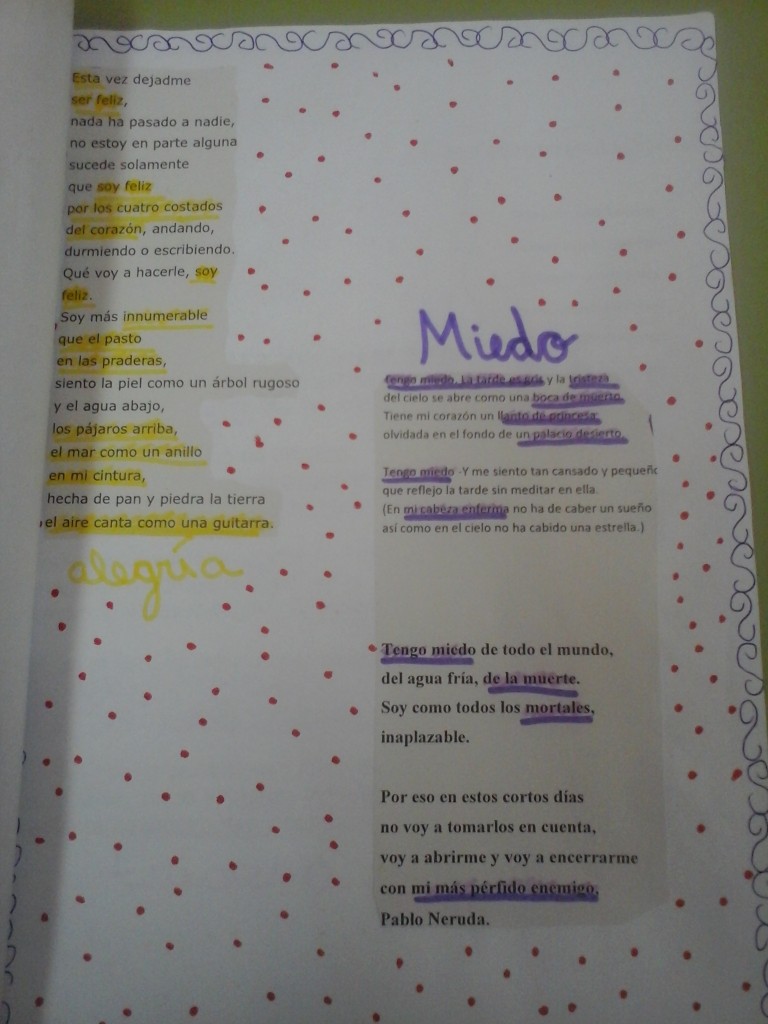 Esta vez dejadme
ser feliz,
nada ha pasado a nadie,
no estoy en parte alguna
sucede solamente
que soy feliz
por los cuatro costados
del corazón, andando,
durmiendo o escribiendo.
Qué voy a hacerle, soy
feliz.
Soy más innumerable
que el pasto
en las praderas,
siento la piel como un árbol rugoso
y el agua abajo,
los pájaros arriba,
el mar como un anillo
en mi cintura,
hecha de pan y piedra la tierra
el aire canta como una guitarra.
alegría
Miedo
Tengo miedo. La tarde es gris y la tristeza
del cielo se abre como una boca de muerto.
Tiene mi corazón un llanto de princesa
olvidada en el fondo de un palacio desierto.
Tengo miedo -Y me siento tan cansado y pequeño
que reflejo la tarde sin meditar en ella.
(En mi cabeza enferma no ha de caber un sueño
así como en el cielo no ha cabido una estrella.)
Tengo miedo de todo el mundo,
del agua fría, de la muerte.
Soy como todos los mortales,
inaplazable.
Por eso en estos cortos días
no voy a tomarlos en cuenta,
voy a abrirme y voy a encerrarme
con mi más pérfido enemigo,
Pablo Neruda.